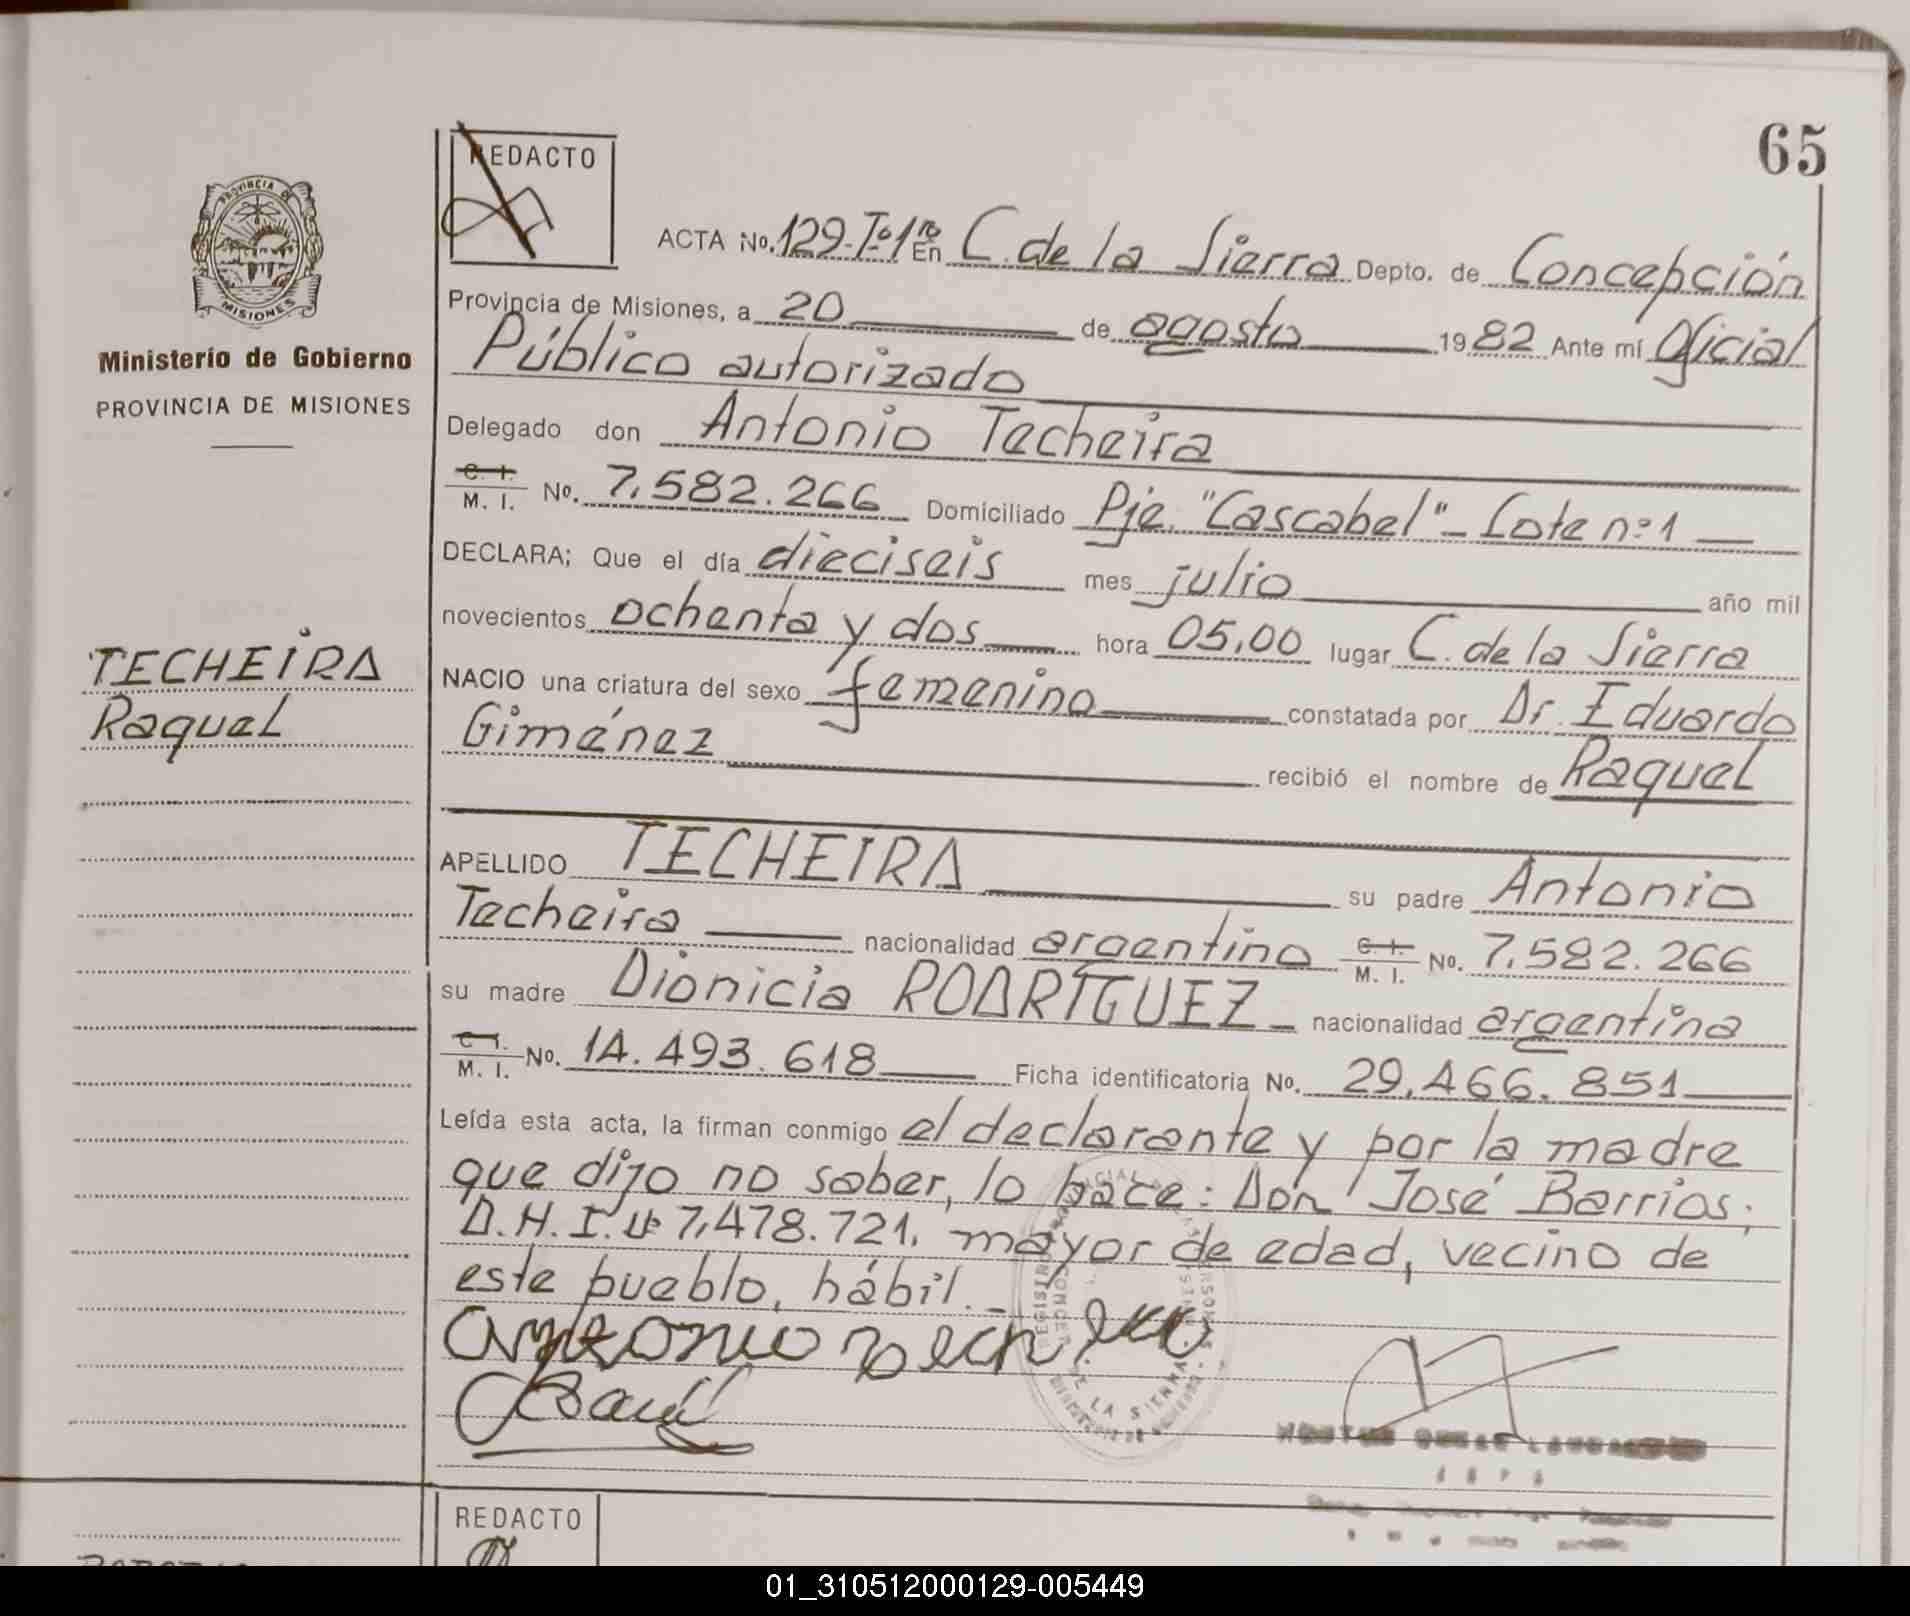 65
REDACTO
PROVINCIA DE
MISIONES
Ministerio de Gobierno
PROVINCIA DE MISIONES
TECHEIRA
Raquel
ACTA No. 129-Tº1ro En C. de la Sierra Depto. de Concepción
Provincia de Misiones, a 20 de agosto 1982 Ante mí Oficial
Público autorizado
Delegado don Antonio Techeira
C. I. / M. I. No. 7.582.266 Domiciliado Pje. "Cascabel" - Lote nº1
DECLARA; Que el día dieciseis mes julio año mil
novecientos ochenta y dos hora 05,00 lugar C. de la Sierra
NACIO una criatura del sexo femenino constatada por Dr. Eduardo
Giménez recibió el nombre de Raquel
APELLIDO TECHEIRA su padre Antonio
Techeira nacionalidad argentino C. I. / M. I. No. 7.582.266
su madre Dionicia RODRIGUEZ nacionalidad argentina
C. I. / M. I. No. 14.493.618 Ficha identificatoria No. 29.466.851
Leída esta acta, la firman conmigo el declarante y por la madre
que dijo no saber, lo hace: Don José Barrios;
D.N.I. Nº 7,478.721, mayor de edad, vecino de
este pueblo, hábil.
DE LA SIERRA
REDACTO
01_310512000129-005449